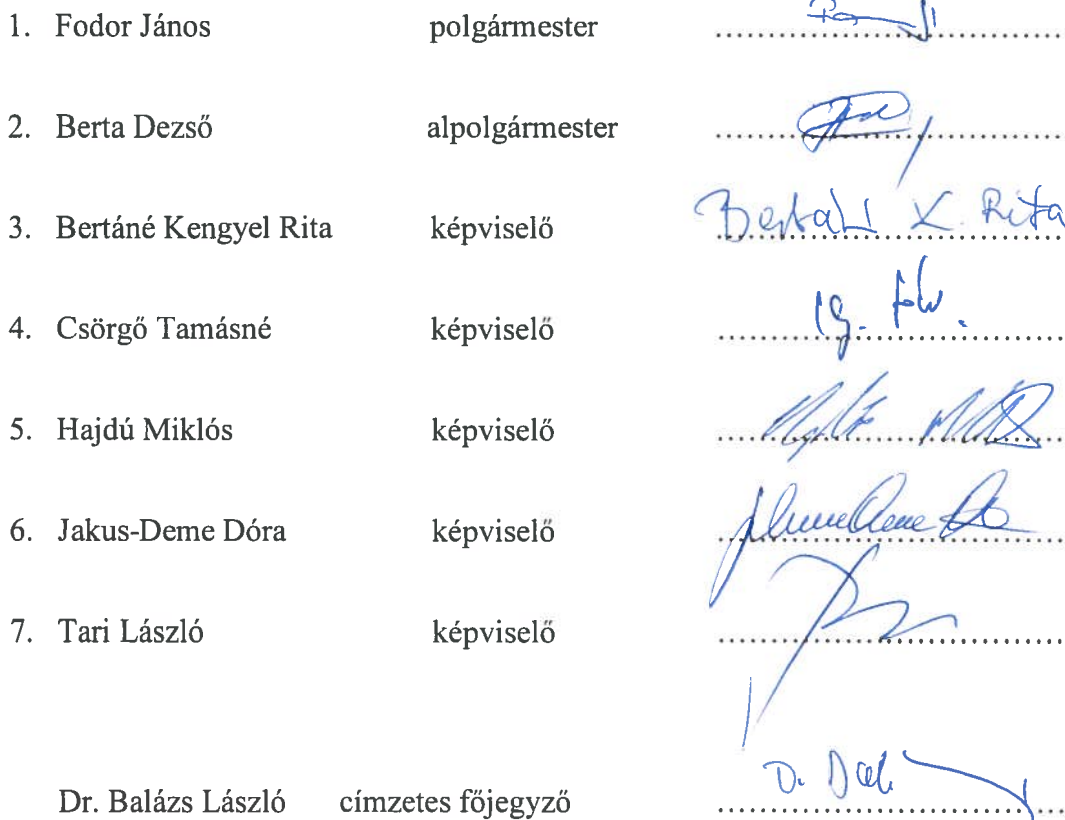 1. Fodor János polgármester ........................
2. Berta Dezső alpolgármester ........................
3. Bertáné Kengyel Rita képviselő Bertáné K. Rita
4. Csörgő Tamásné képviselő ........................
5. Hajdú Miklós képviselő ........................
6. Jakus-Deme Dóra képviselő ........................
7. Tari László képviselő ........................
Dr. Balázs László címzetes főjegyző ........................